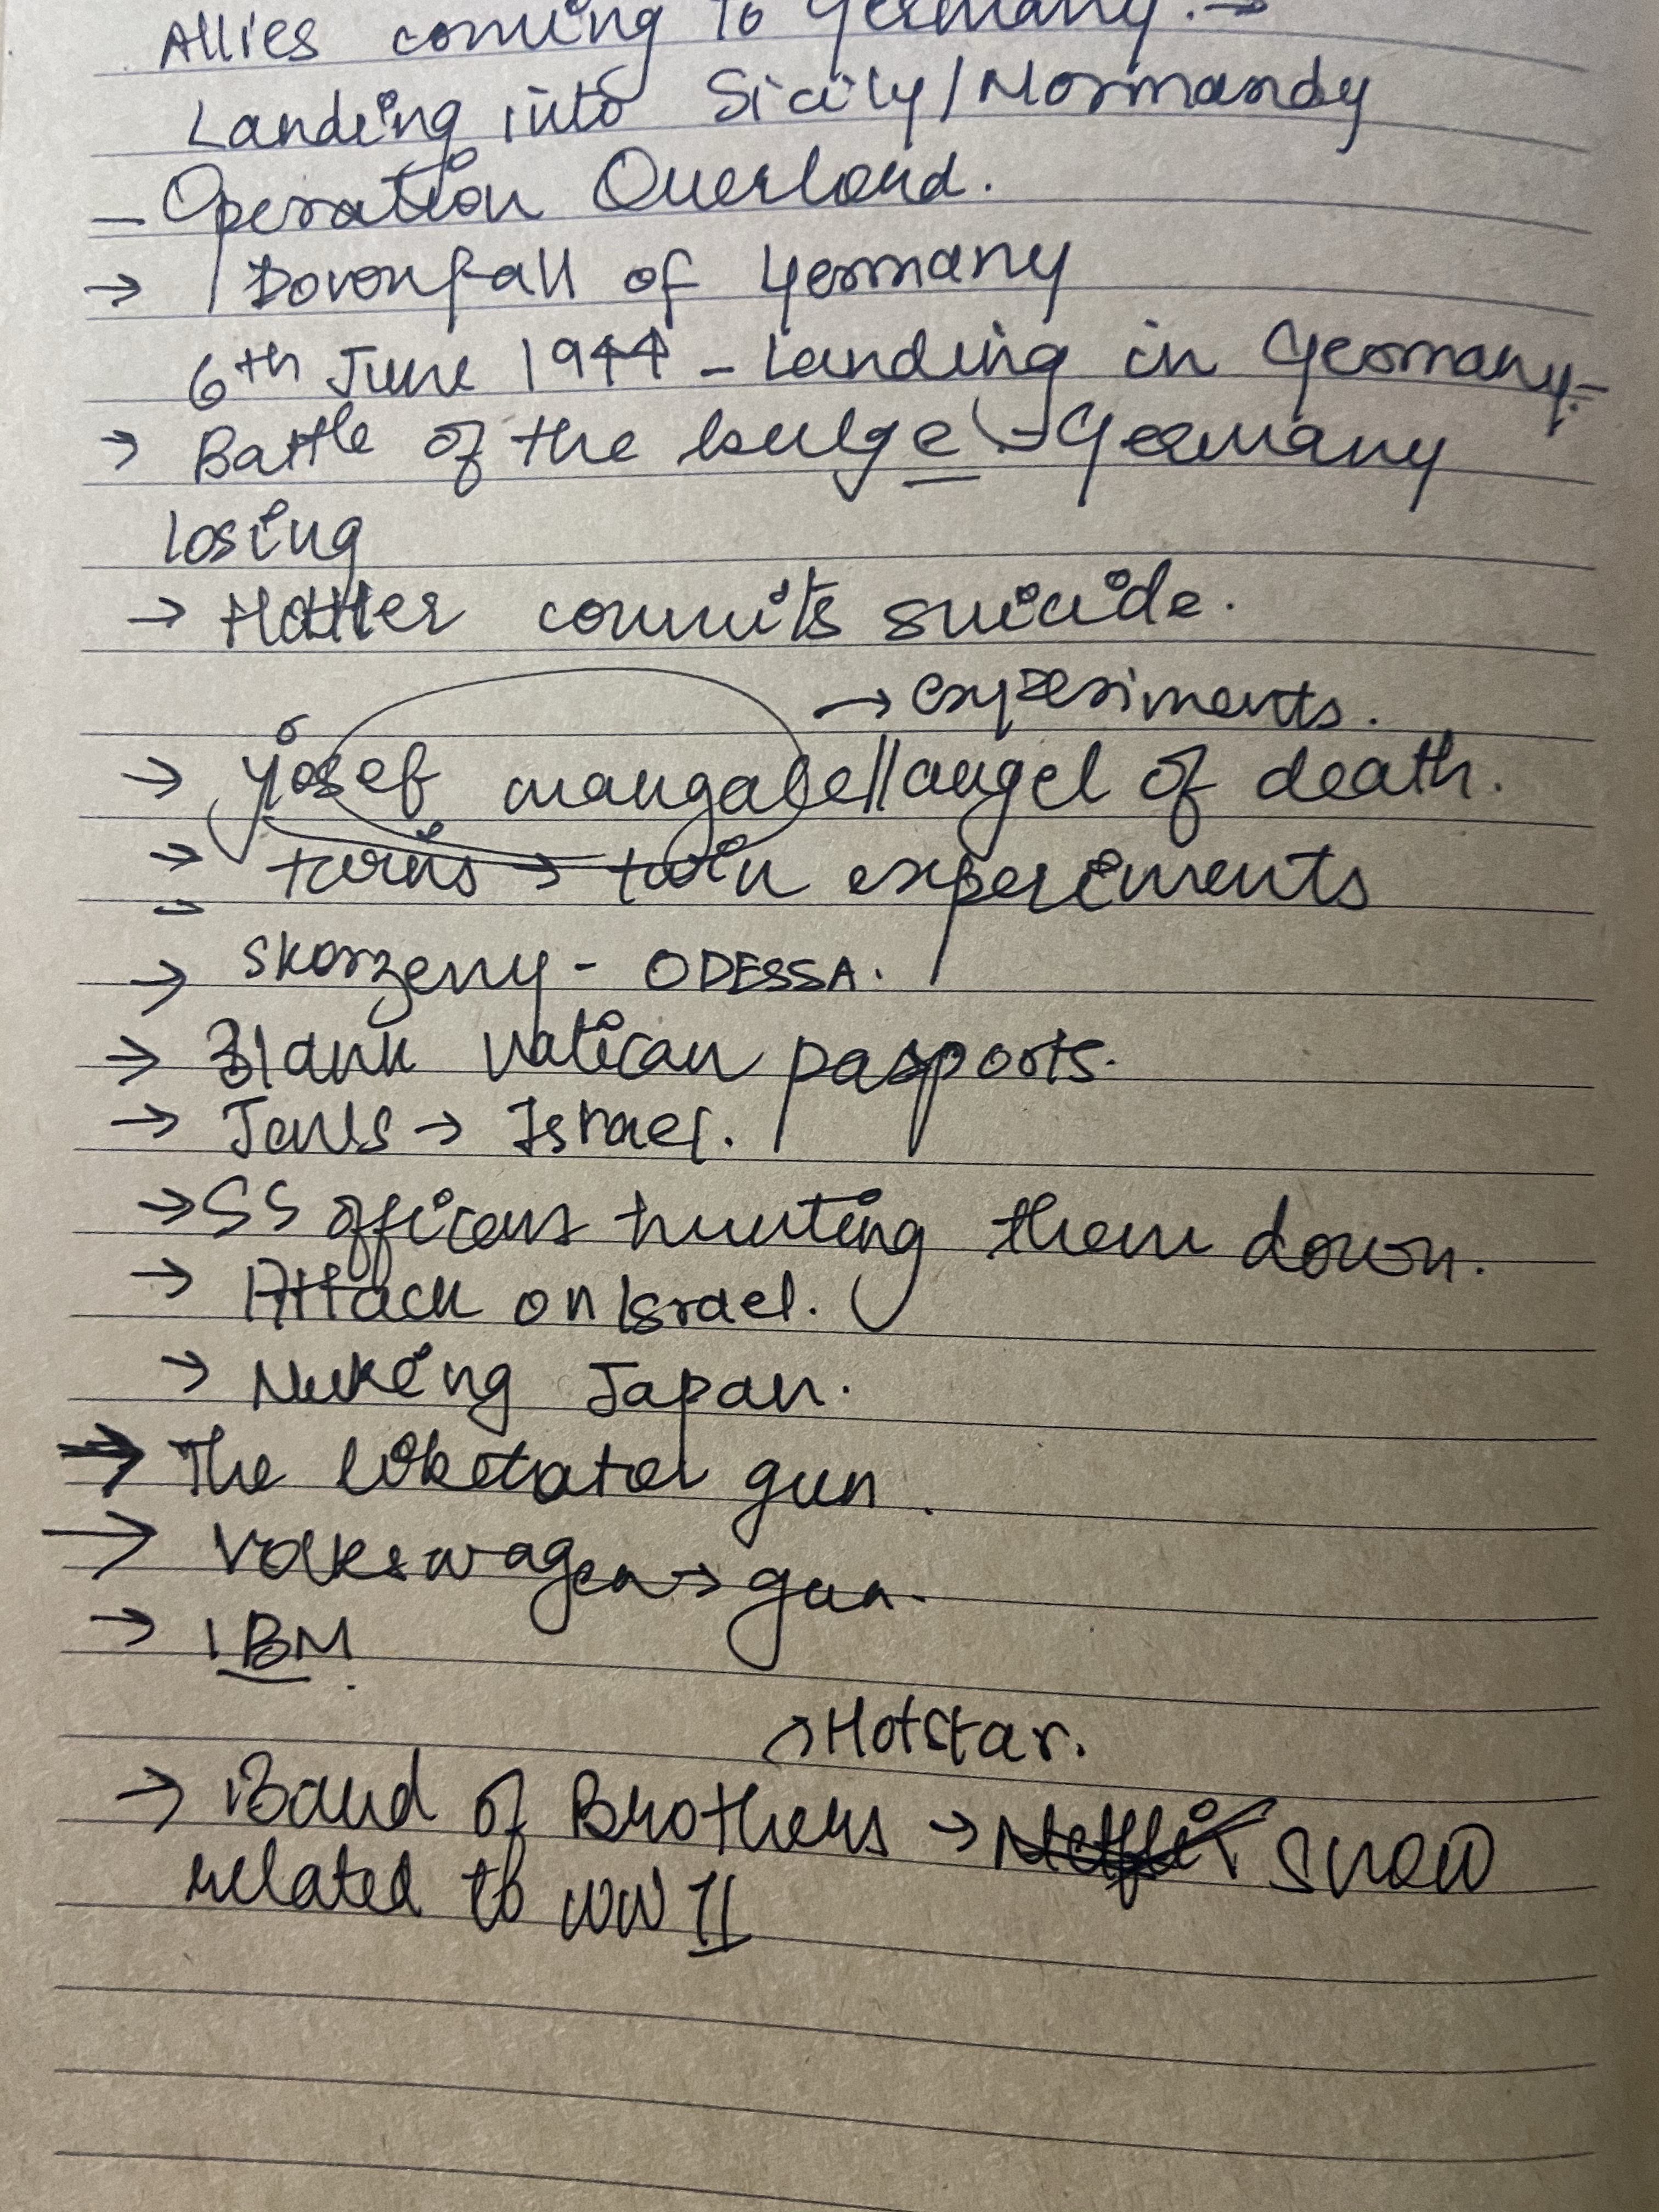 Allies coming to Germany. →
Landing into Sicily/Normandy
- Operation Overlord.
→ Downfall of Germany
6th June 1944 - Landing in Germany.-
→ Battle of the bulge - Germany
losing
→ Hitler commits suicide.
→ experiments.
→ josef mangale//angel of death.
→ twins → twin experiments
→ Skorzeny - ODESSA.
→ Blank Vatican passports.
→ Jews → Israel.
→ SS officers hunting them down.
→ Attack on Israel.
→ Nuking Japan.
→ The gun.
→ Volkswagen → gun.
→ IBM.
→ Hotstar.
→ Band of Brothers → Netflix Show
related to WW II